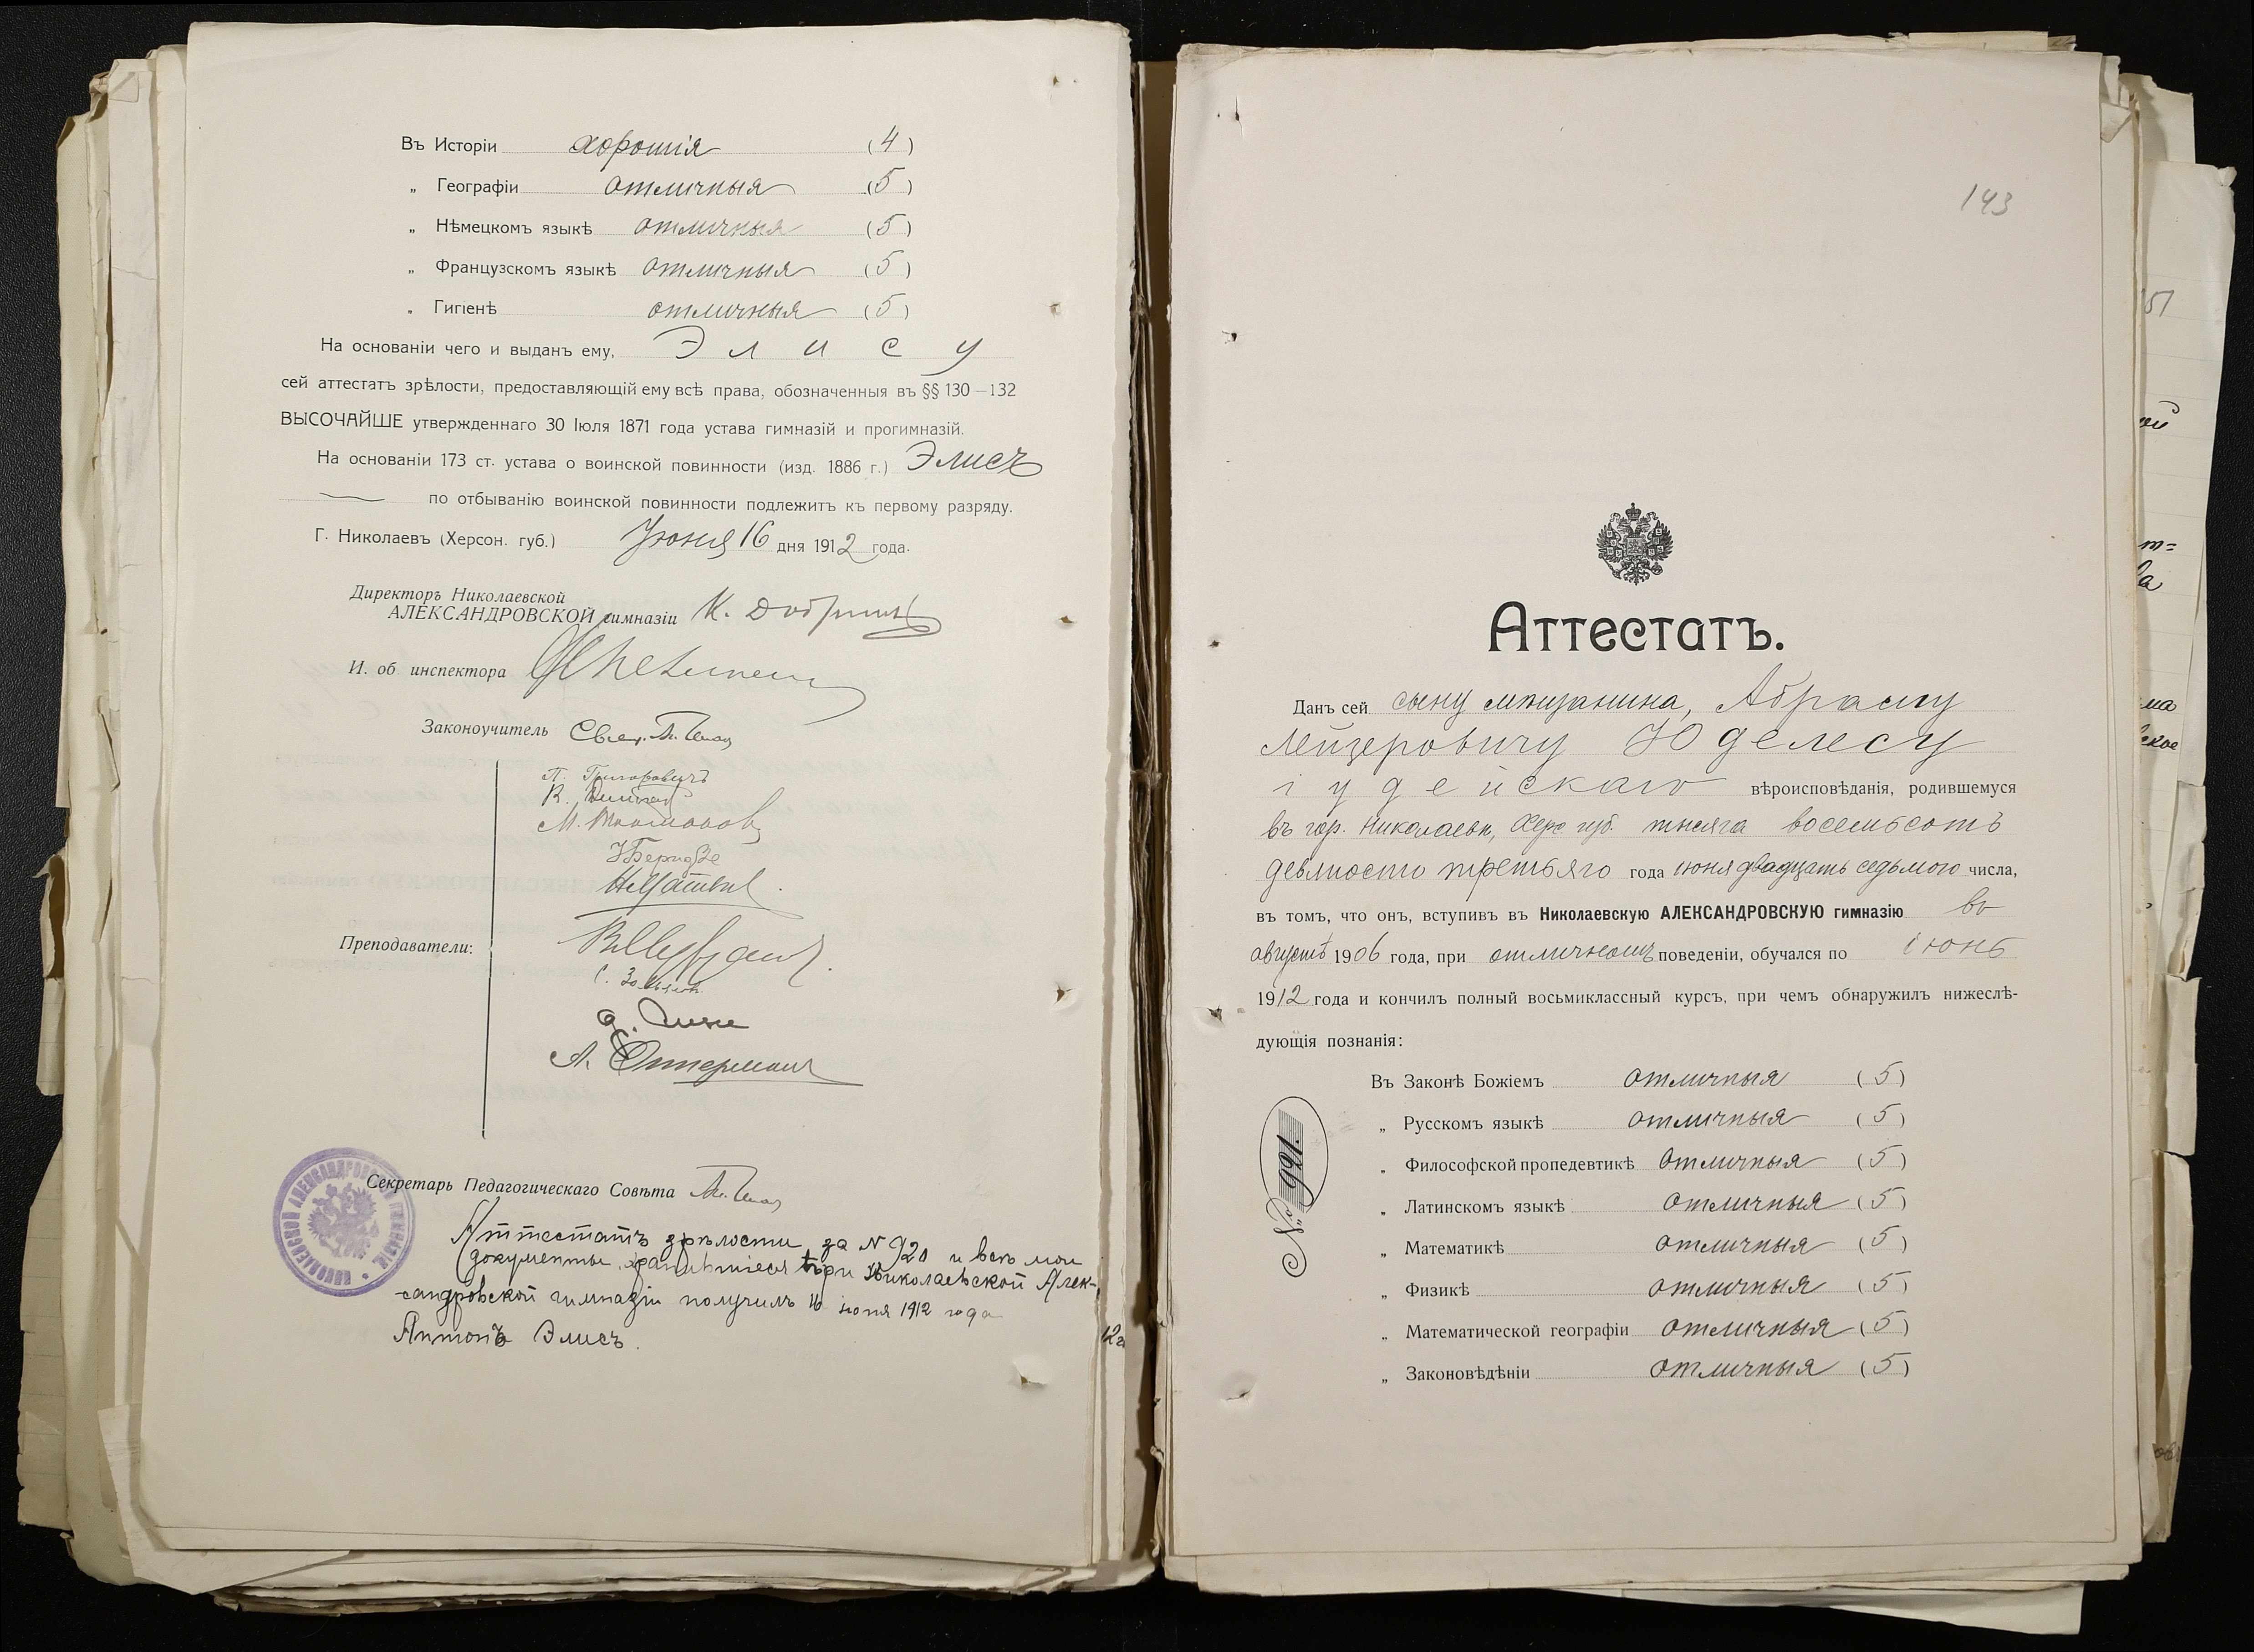 Въ Исторіи хорошія (4)
„ Географіи отличныя (5)
„ Нѣмецкомъ языкѣ отличныя (5)
„ Французскомъ языкѣ отличныя (5)
„ Гигіенѣ отличныя (5)
На основаніи чего и выданъ ему, Элису
сей аттестатъ зрѣлости, предоставляющій ему всѣ права, обозначенныя въ §§ 130—132
ВЫСОЧАЙШЕ утвержденнаго 30 Іюля 1871 года устава гимназій и прогимназій.
На основаніи 173 ст. устава о воинской повинности (изд. 1886 г.) Элисъ
по отбыванію воинской повинности подлежитъ къ первому разряду.
Г. Николаевъ (Херсон. губ.) Іюня 16 дня 1912 года.
Директоръ Николаевской
АЛЕКСАНДРОВСКОЙ гимназіи К.
И. об инспектора
Законоучитель Свящ.
П. Григоровичъ
К.
М.
Преподаватели:
С.
А. Оттерманъ
Секретарь Педагогическаго Совѣта
НИКОЛАЕВСКОЙ АЛЕКСАНДРОВСКОЙ ГИМНАЗІИ
Аттестатъ зрѣлости за № 920 и всѣ мои
документы, хранившіеся при Николаевской Алек-
сандровской гимназіи получилъ 16 іюня 1912 года
Антонъ Элисъ.
143
Аттестатъ.
Данъ сей сыну мѣщанина, Абраму
Лейзеровичу Юделесу
іудейскаго вѣроисповѣданія, родившемуся
въ гор. Николаевѣ, Херс. губ. тысяча восемьсотъ
девяносто третьяго года іюня двадцать седьмого числа,
въ томъ, что онъ, вступивъ въ Николаевскую АЛЕКСАНДРОВСКУЮ гимназію въ
августѣ 1906 года, при отличномъ поведеніи, обучался по іюнь
1912 года и кончилъ полный восьмиклассный курсъ, при чемъ обнаружилъ нижеслѣ-
дующія познанія:
Въ Законѣ Божіемъ отличныя (5)
„ Русскомъ языкѣ отличныя (5)
„ Философской пропедевтикѣ отличныя (5)
„ Латинскомъ языкѣ отличныя (5)
„ Математикѣ отличныя (5)
„ Физикѣ отличныя (5)
„ Математической географіи отличныя (5)
„ Законовѣдѣніи отличныя (5)
№ 921.